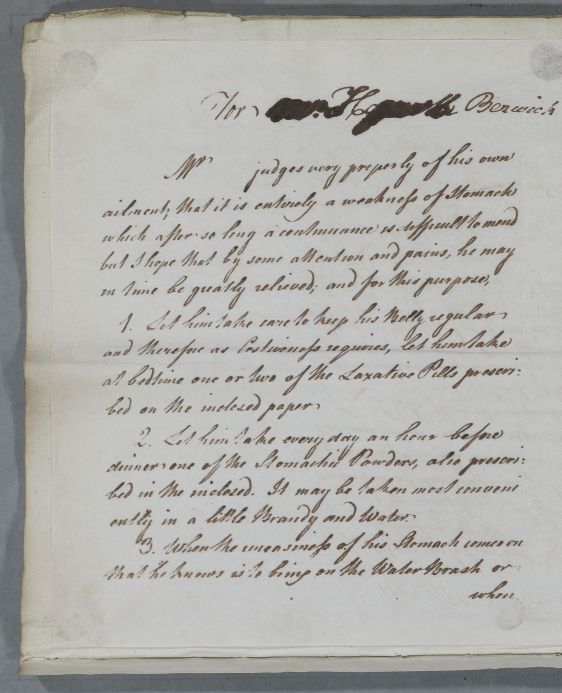 For Berwick
Mr judges very properly of his own
ailment, that it is entirely a weakness of Stomach
which after so long a continuance is difficult to mend
but I hope that by some attention and pains, he may
in time be greatly relieved; and for this purpose,
1. Let him take care to keep his Belly regular
and therefore as Costiveness requires, let him take
at bedtime one or two of the Laxative Pills prescri:
bed on the inclosed paper
2. Let him take every day an hour before
dinner one of the Stomachic Powders, also prescri:
bed in the inclosed. It may be taken most conveni
ently in a little Brandy and Water.
3. When the uneasiness of his Stomach comes on
that he knows is to bring on the Water Brash or
when